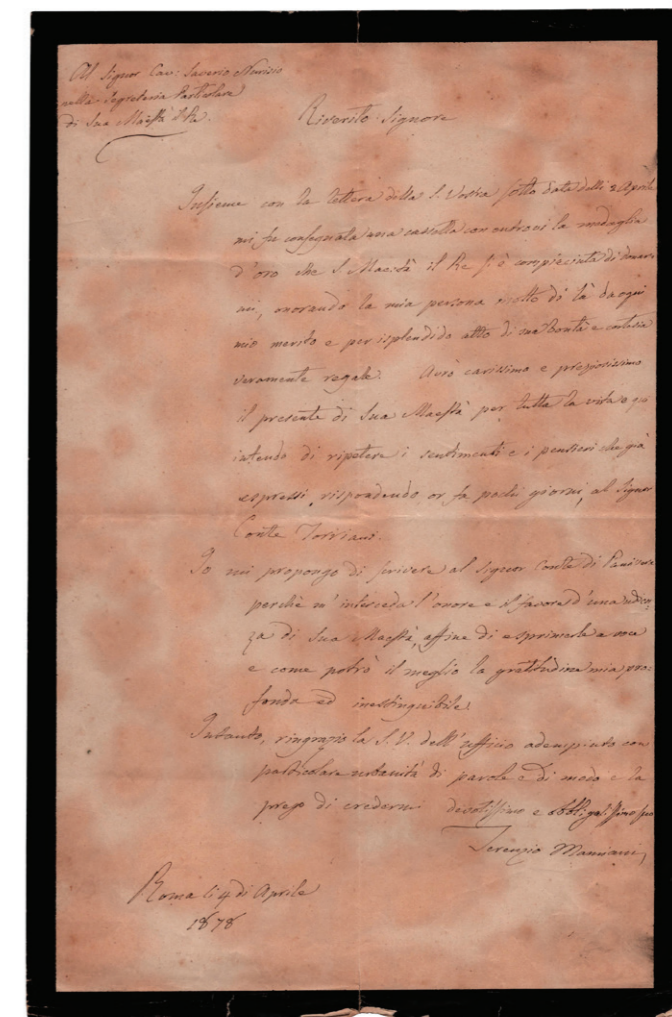 Al Signor Cav: Saverio
nella Segreteria Particolare
di Sua Maestà il Re.
Riverito Signore
Insieme con la lettera della S. Vostra sotto data delli 2 Aprile
mi fu consegnata una cassetta con entrovi la medaglia
d'oro che S. Maestà il Re si è compiaciuta di donar
mi, onorando la mia persona molto di là da ogni
mio merito e per isplendido atto di sua bontà e cortesia
veramente regale. Avrò carissimo e preziosissimo
il presente di Sua Maestà per tutta la vita e qui
intendo di ripetere i sentimenti e i pensieri che già
espressi, rispondendo or fa pochi giorni, al Signor
Conte Torriani.
Io mi propongo di scrivere al Signor Conte di
perchè m'interceda l'onore e il favore d'una udien
za di Sua Maestà, affine di esprimerle a voce
e come potrò il meglio la gratitudine mia pro
fonda ed inestinguibile.
Intanto, ringrazio la S. V. dell'ufficio adempiuto con
particolare urbanità di parole e di modo e la
prego di credermi devotissimo e obbligatissimo suo
Terenzio Mamiani
Roma li 4 di Aprile
1878